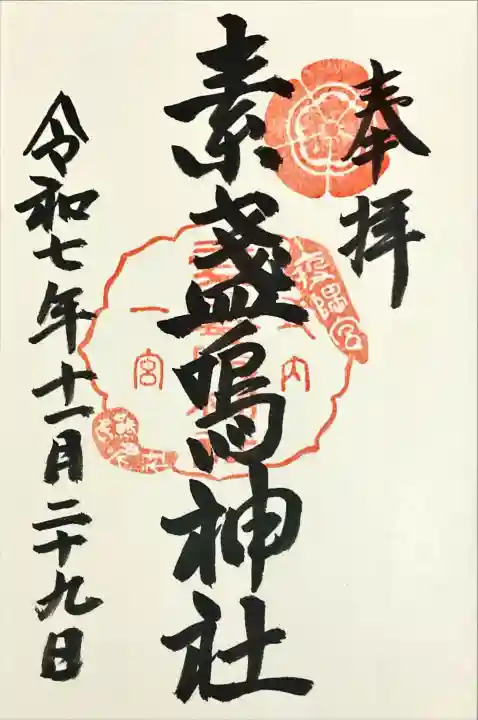 奉拝
素盞嗚神社
一宮
令和七年十一月二十九日